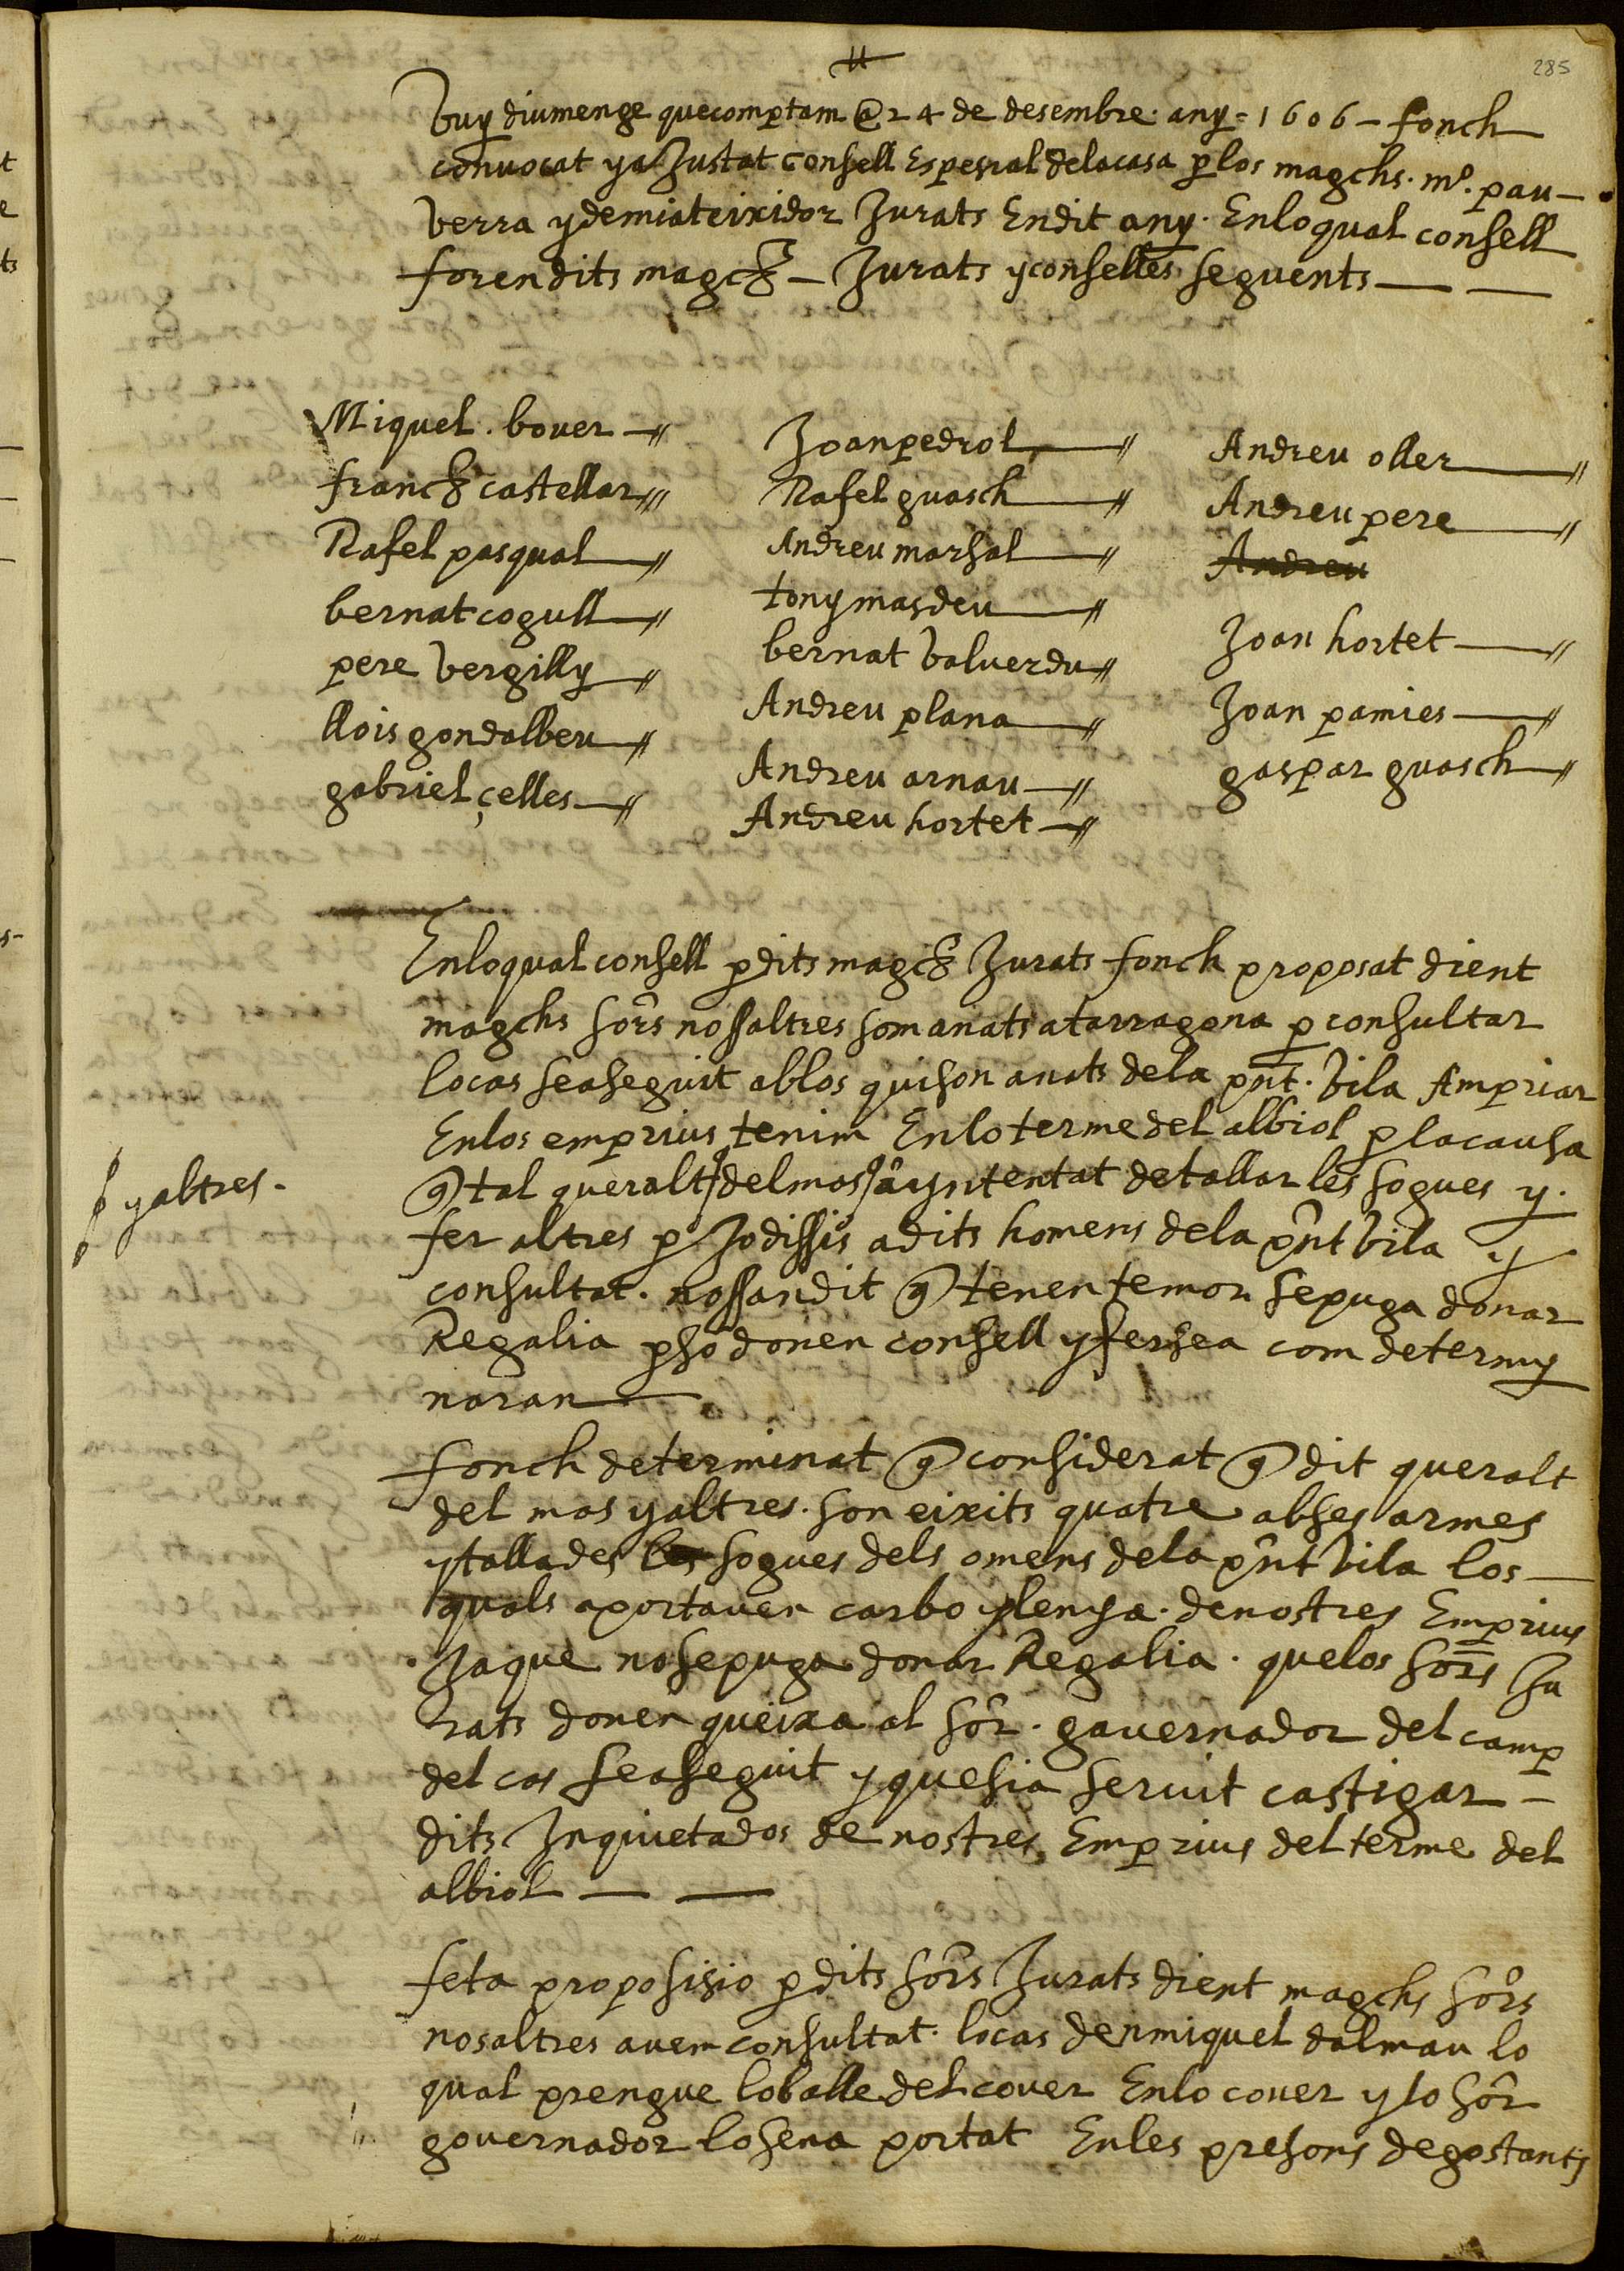 285
Vuy diumenge que comptam @ 24 de desembre any = 1606 - fonch
convocat y aJustat consell Espesial de la casa p los magchs. mº. pau -
verra y demia teixidor Jurats En dit any. En lo qual consell
foren dits magch - Jurats y conselles seguents - -
Miquel bover
franch castellar
Rafel pasqual
bernat cogull
pere vergilly
llois gondalbeu
gabriel çelles
Joan pedrol
Rafel guasch
Andreu marsal
tony masdeu
bernat valverdu
Andreu plana
Andreu arnau
Andreu hortet
Andreu oller
Andreu pere
Andreu
Joan hortet
Joan pamies
gaspar guasch
En lo qual consell p dits magch Jurats fonch proposat dient
magchs sors nossaltres som anats a tarragona p consultar
lo cas sea seguit ab los qui son anats de la pnt. vila Ampriar
En los emprius tenim En lo terme del albiol p la causa
q tal queralt del mas a yntentat de tallar les sogues y
y altres -
fer altres p Jodissis a dits homens de la pnt vila y
consultat. nossan dit q tenen temor se puga donar
Regalia p so donen consell y fer sea com determy
naran
fonch determinat q considerat q dit queralt
del mas y altres son eixits quatre ab ses armes
y tallades les sogues dels omens de la pnt vila los -
quals aportaven carbo y lenya de nostres Emprius
Ja que no se puga donar Regalia. que los sors Ju
rats donen queixa al sor. gavernador del camp
del cas sea seguit y que sia servit castigar -
dits Inquietados de nostres Emprius del terme del
albiol - -
feta proposisio p dits sors Jurats dient magchs sors
nosaltres avem consultat lo cas den miquel dalmau lo
qual prengue lo balle del cover En lo cover y lo sor
governador lo sena portat En les presons de gostanti